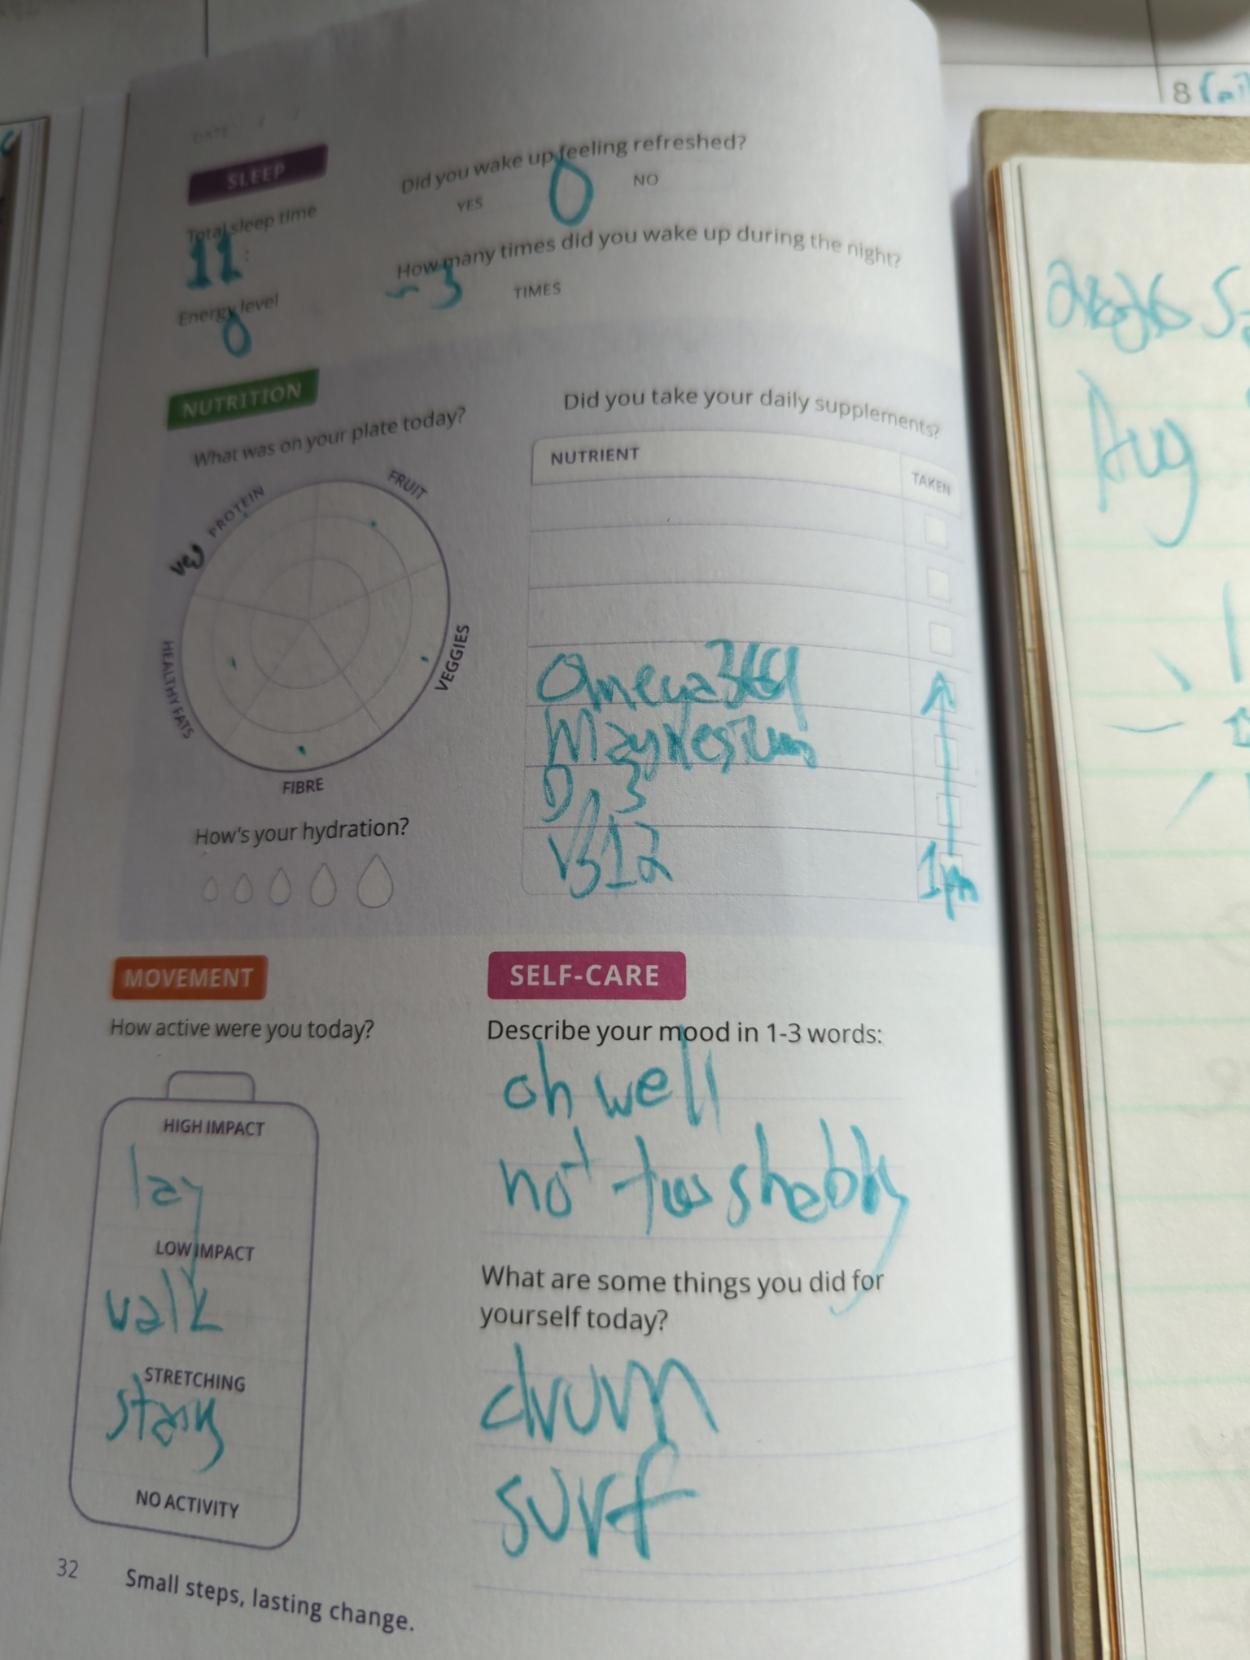 DATE / /
SLEEP
Did you wake up feeling refreshed?
YES 0 NO
Total sleep time
11 :
How many times did you wake up during the night?
~3 TIMES
Energy level
0
NUTRITION
What was on your plate today?
PROTEIN
FRUIT
veg
VEGGIES
HEALTHY FATS
FIBRE
How's your hydration?
Did you take your daily supplements?
NUTRIENT TAKEN
Omega369
Magnesium
D 3
VB12
1pm
MOVEMENT
How active were you today?
HIGH IMPACT
lay
LOW IMPACT
walk
STRETCHING
stay
NO ACTIVITY
SELF-CARE
Describe your mood in 1-3 words:
oh well
not too shabby
What are some things you did for
yourself today?
drum
surf
32 Small steps, lasting change.
8
Aug